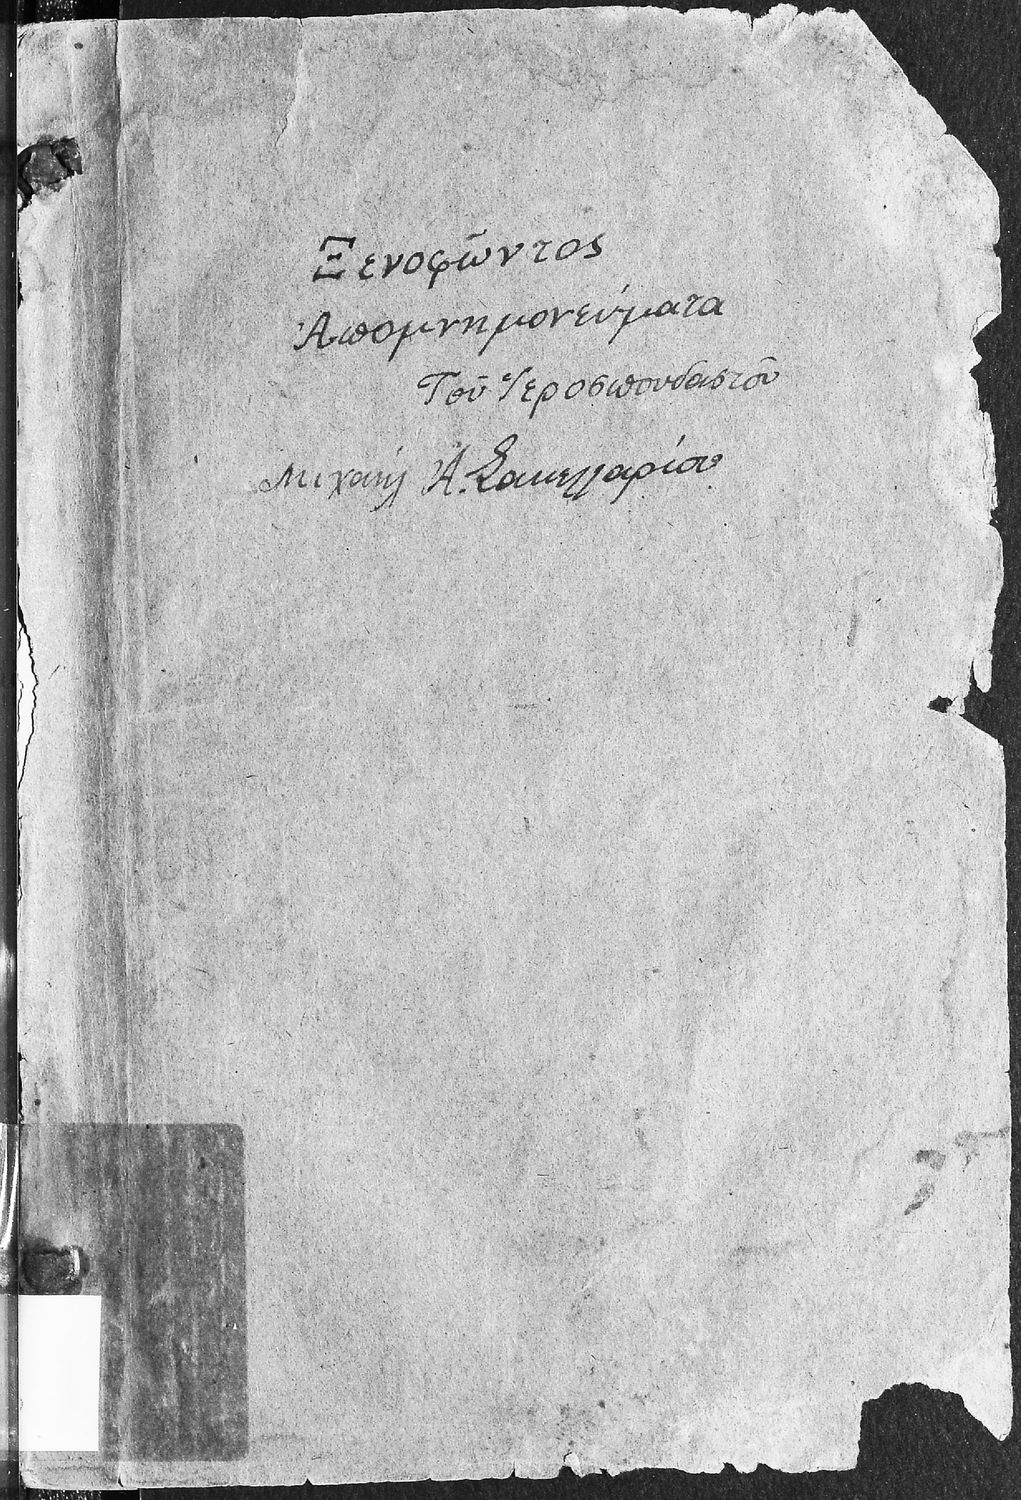 Ξενοφῶντος
Ἀπομνημονεύματα
Τοῦ Ἱεροσπουδαστοῦ
Μιχαήλ Ἀ. Σακελλαρίου